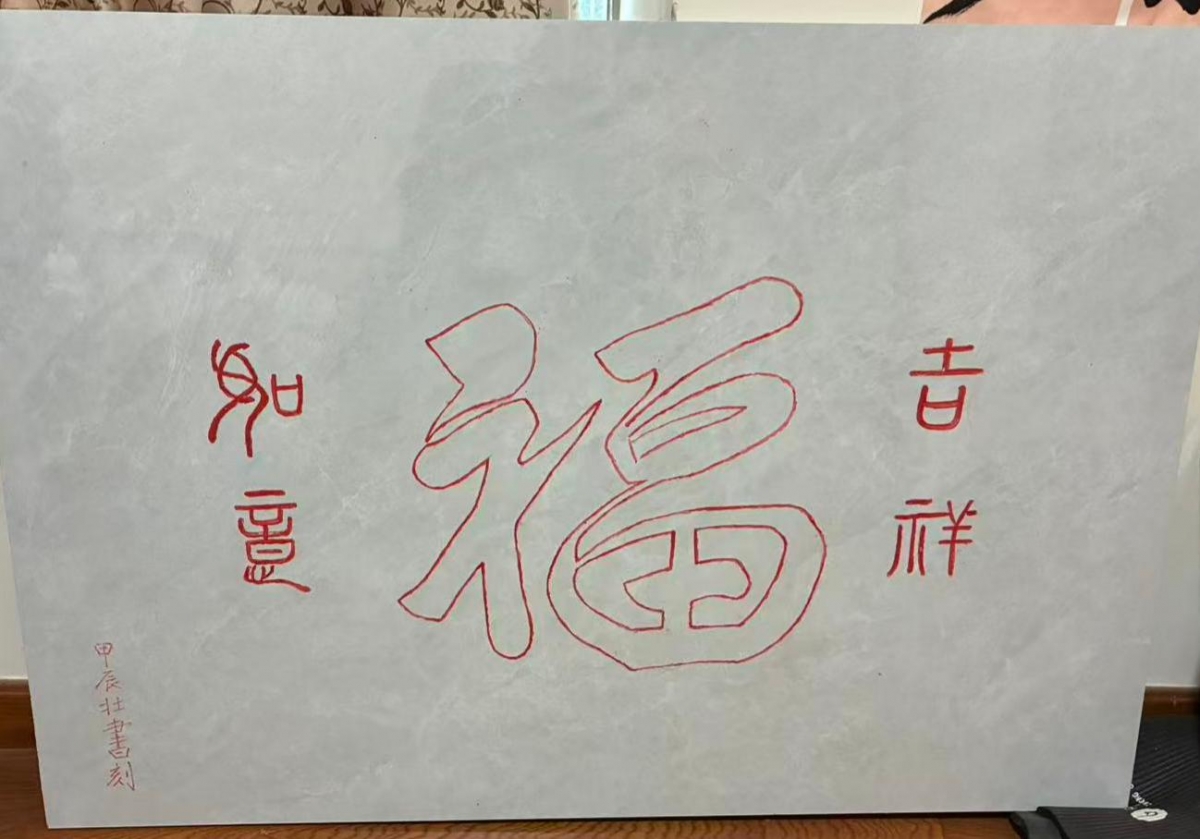 吉祥
福
如意
甲辰壮書刻